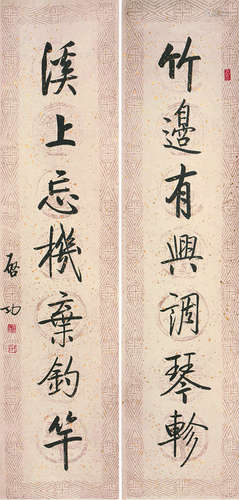 竹邊有興調琴軫
溪上忘機棄釣竿
啟功